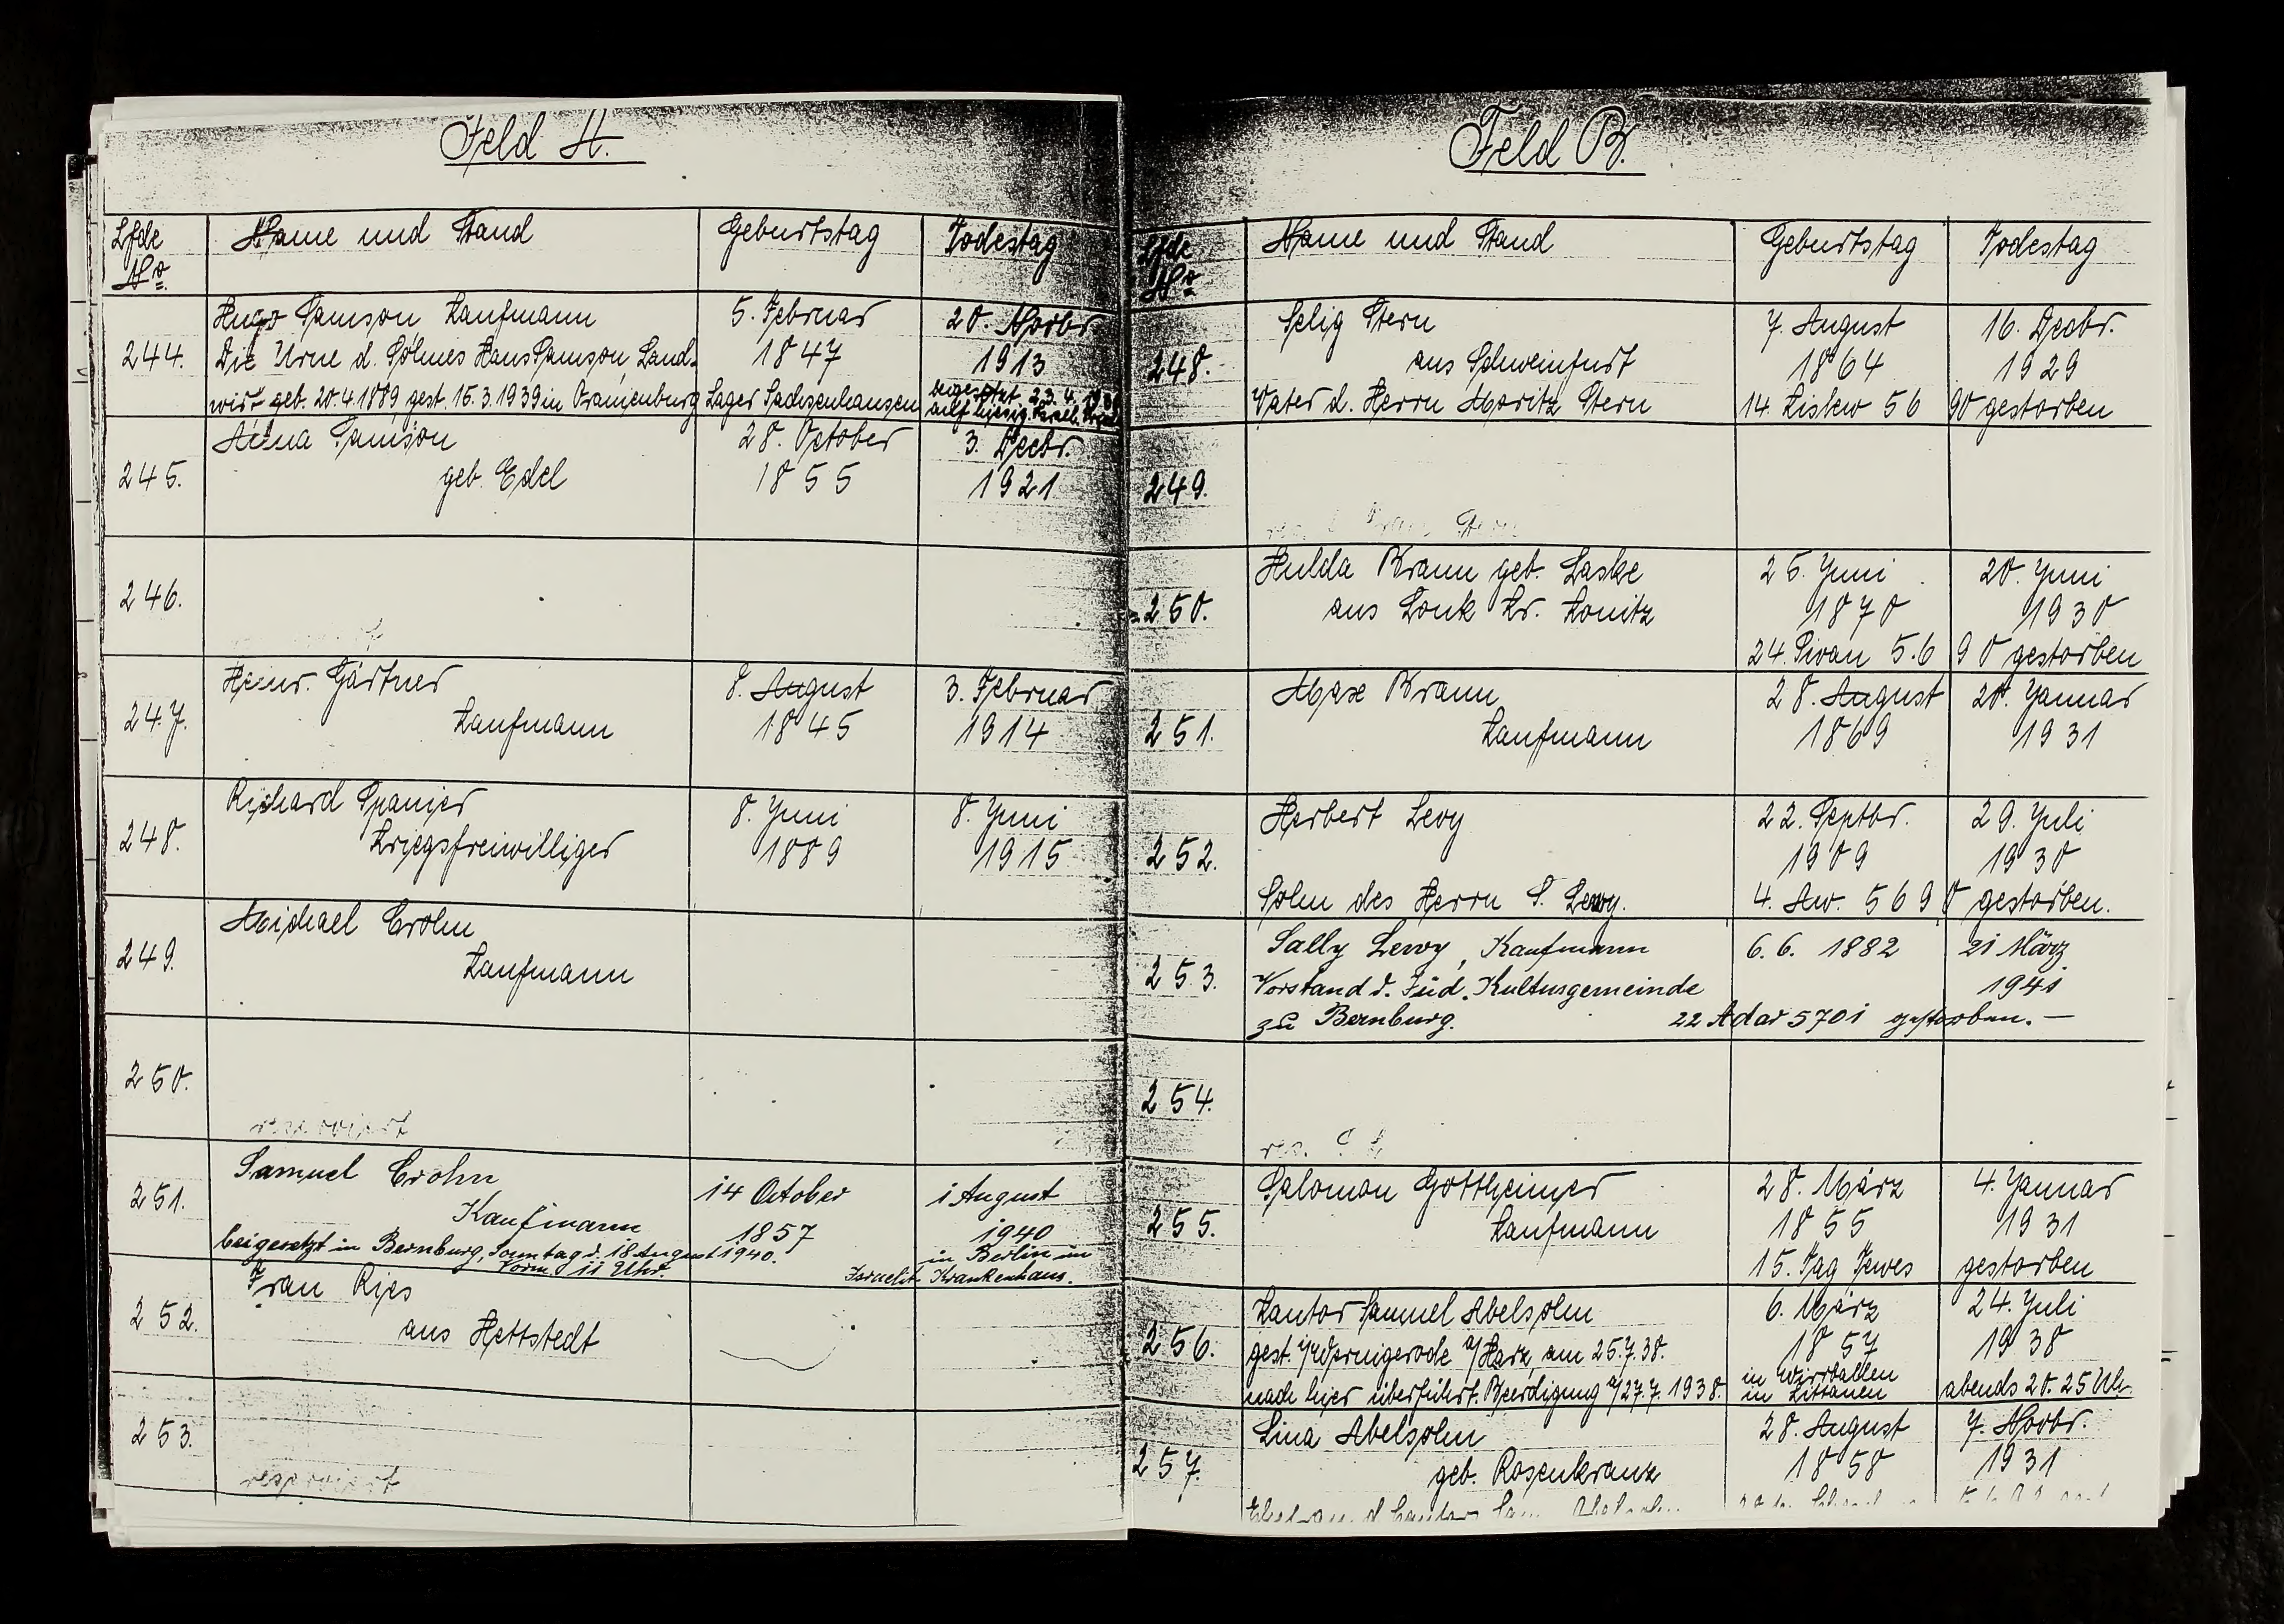 Feld A.
Lfde
No
Name und Stand
Geburtstag
Todestag
244.
Hugo Samson Kaufmann
Die Urne d. Sohnes Hans Samson, Land-
wirt geb. 20.4.1889 gest. 15.3.1939 in Oranienburg Lager Sachsenhausen
5. Februar
1847
20. Novbr
1913
beigesetzt 23.4.1939
auf hiesig. Israel.
245.
Anna Samson
geb. Edel
28. October
1855
3. Decbr.
1921
246.
247.
Heinr. Gärtner
Kaufmann
8. August
1845
3. Februar
1914
248.
Richard Spanier
Kriegsfreiwilliger
8. Juni
1889
8. Juni
1915
249.
Michael Crohn
Kaufmann
250.
reserviert
251.
Samuel Crohn
Kaufmann
beigesetzt in Bernburg, Sonntag d. 18 August 1940.
Vorm. 11 Uhr.
14 October
1857
1 August
1940
in Berlin im
Israelit. Krankenhaus.
252.
Frau Ries
aus Hettstedt
253.
reserviert
Feld B.
Lfde
No
Name und Stand
Geburtstag
Todestag
248.
Selig Stern
aus Schweinfurt
Vater d. Herrn Moritz Stern
7. August
1864
14. Kislew 56
16. Decbr.
1929
90 gestorben
249.
Stern
250.
Hulda Kraun geb. Laske
aus Konk Kr. Konitz
25. Juni
1870
24. Siwan 5.6
20. Juni
1930
90 gestorben
251.
Max Kraun
Kaufmann
28. August
1869
20. Januar
1931
252.
Herbert Levy
Sohn des Herrn S. Levy.
22. Septbr.
1909
4. Aw. 569
29. Juli
1930
0 gestorben.
253.
Sally Levy, Kaufmann
Vorstand d. Jüd. Kultusgemeinde
zu Bernburg.
6.6. 1882
21 März
1941
22 Adar 5701 gestorben. —
254.
res.
255.
Salomon Gottheimer
Kaufmann
28. März
1855
15. Tag Tewes
4. Januar
1931
gestorben
256.
Kantor Samuel Abelsohn
gest. i/Wernigerode a/Harz, am 25.7.38.
nach hier überführt. Beerdigung a/27.7.1938.
6. März
1857
in Wirrballen
in Littauen
24. Juli
1938
abends 20.25 Uhr
257.
Lina Abelsohn
geb. Rosenkranz
28. August
1858
7. Novbr.
1931